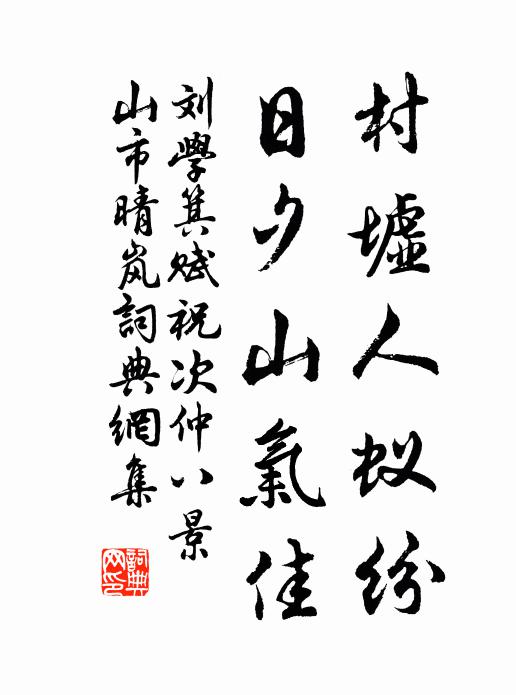 村墟人蚁纷
日夕山氣佳
刘學箕赋祝次仲八景
山市晴岚詞典網集
詞典
网印